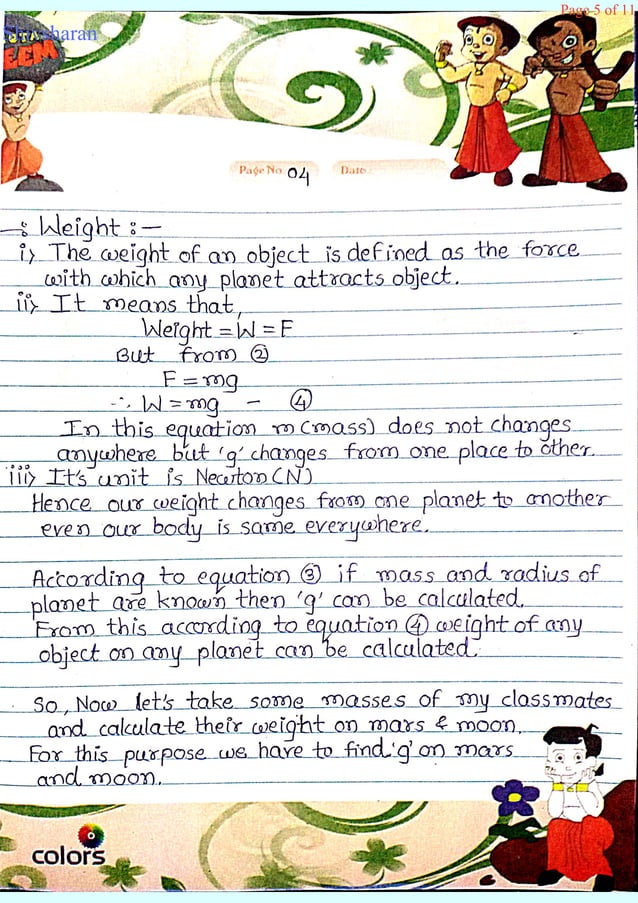 Page 5 of 11
sharan
EEM
Page No. 04 Date :
-: Weight :-
i) The weight of an object is defined as the force
with which any planet attracts object.
ii) It means that,
Weight = W = F
But from ②
F = mg
∴ W = mg - ④
In this equation m (mass) does not changes
anywhere but 'g' changes from one place to other.
iii) It's unit is Newton (N)
Hence our weight changes from one planet to another
even our body is same everywhere.
According to equation ③ if mass and radius of
planet are known then 'g' can be calculated.
From this according to equation ④ weight of any
object on any planet can be calculated.
So, Now let's take some masses of my classmates
and calculate their weight on mars & moon.
For this purpose we have to find 'g' on mars
and moon.
colors